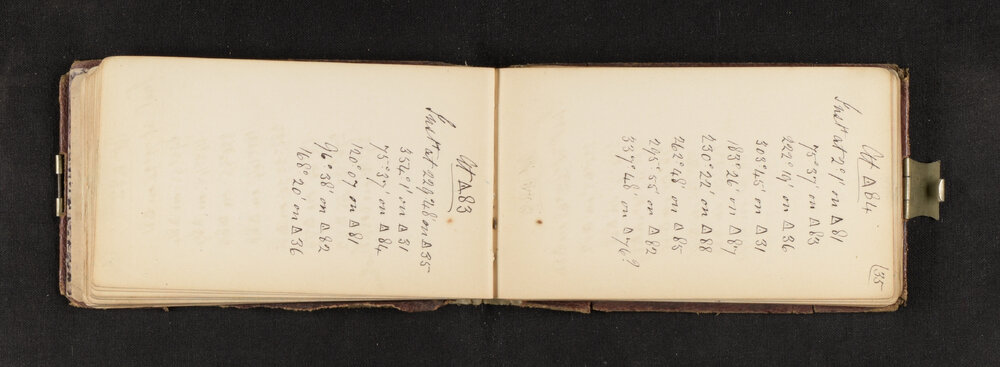 35
At Δ 84
Inst at 2°1' on Δ 81
75°37' on Δ 83
222°19' on Δ 36
303°45' on Δ 31
183°26' on Δ 87
230°22' on Δ 88
262°48' on Δ 85
295°55' on Δ 82
337°48' on Δ 76?
At Δ 83
Inst at 229°48' on Δ 35
354°1' on Δ 31
75°37' on Δ 84
120°07 on Δ 81
96°38' on Δ 82
168°20' on Δ 36